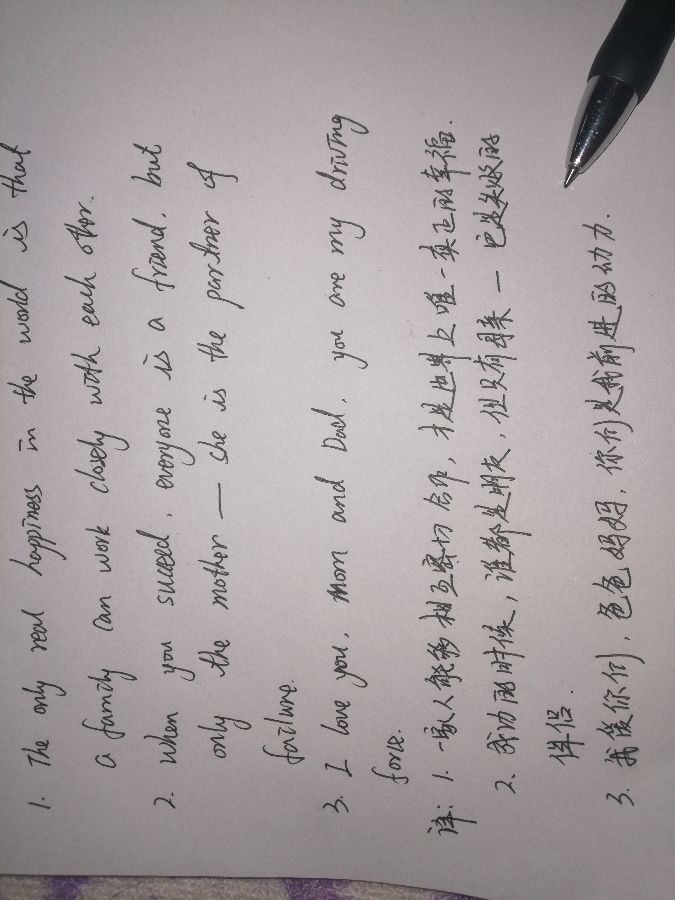 1. The only real happiness in the world is that
a family can work closely with each other.
2. When you succeed, everyone is a friend, but
only the mother — she is the partner of
failure.
3. I love you, Mom and Dad, you are my driving
force.
译: 1. 一家人能够相互密切合作, 才是世界上唯一真正的幸福.
2. 成功的时候, 谁都是朋友, 但只有母亲 — 她是失败的
伴侣.
3. 我爱你们, 爸爸妈妈, 你们是我前进的动力.